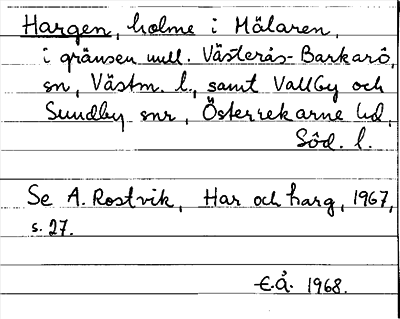 Hargen, holme i Mälaren,
i gränsen mell. Västerås-Barkarö,
sn, Västm. l., samt Vallby och
Sundby snr, Österrekarne hd,
Söd. l.
Se A. Rostvik, Har och harg, 1967,
s. 27.
E.Å. 1968.